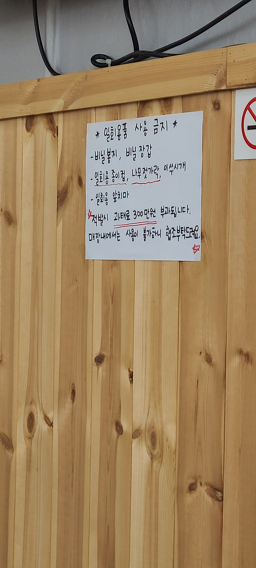 * 일회용품 사용 금지 *
- 비닐봉지, 비닐장갑
- 일회용 종이컵, 나무젓가락, 이쑤시개
- 일회용 앞치마
적발시 과태료 300만원 부과됩니다.
매장내에서는 사용이 불가하니 협조부탁드려요.